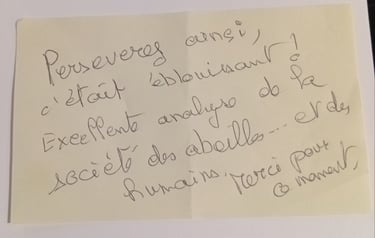 Perseveres ainsi,
c'était éblouissant !
Excellente analyse de la
société des abeilles... et des
humains. Merci pour
ce moment.